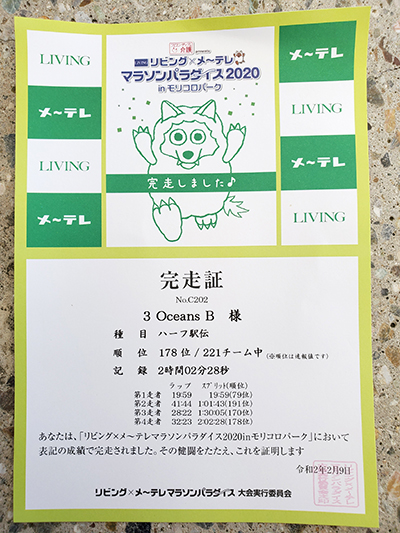 LIVING
メ〜テレ
LIVING
メ〜テレ
リビング×メ〜テレ
マラソンパラダイス2020
inモリコロパーク
完走しました♪
メ〜テレ
LIVING
メ〜テレ
LIVING
完走証
No.C202
3 Oceans B 様
種 目 ハーフ駅伝
順 位 178位/221チーム中 (※順位は速報値です)
記 録 2時間02分28秒
ラップ スプリット(順位)
第1走者 19:59 19:59(79位)
第2走者 41:44 1:01:43(191位)
第3走者 28:22 1:30:05(170位)
第4走者 32:23 2:02:28(178位)
あなたは、「リビング×メ〜テレマラソンパラダイス2020inモリコロパーク」において
表記の成績で完走されました。その健闘をたたえ、これを証明します
令和2年2月9日
リビング×メ〜テレマラソンパラダイス 大会実行委員会